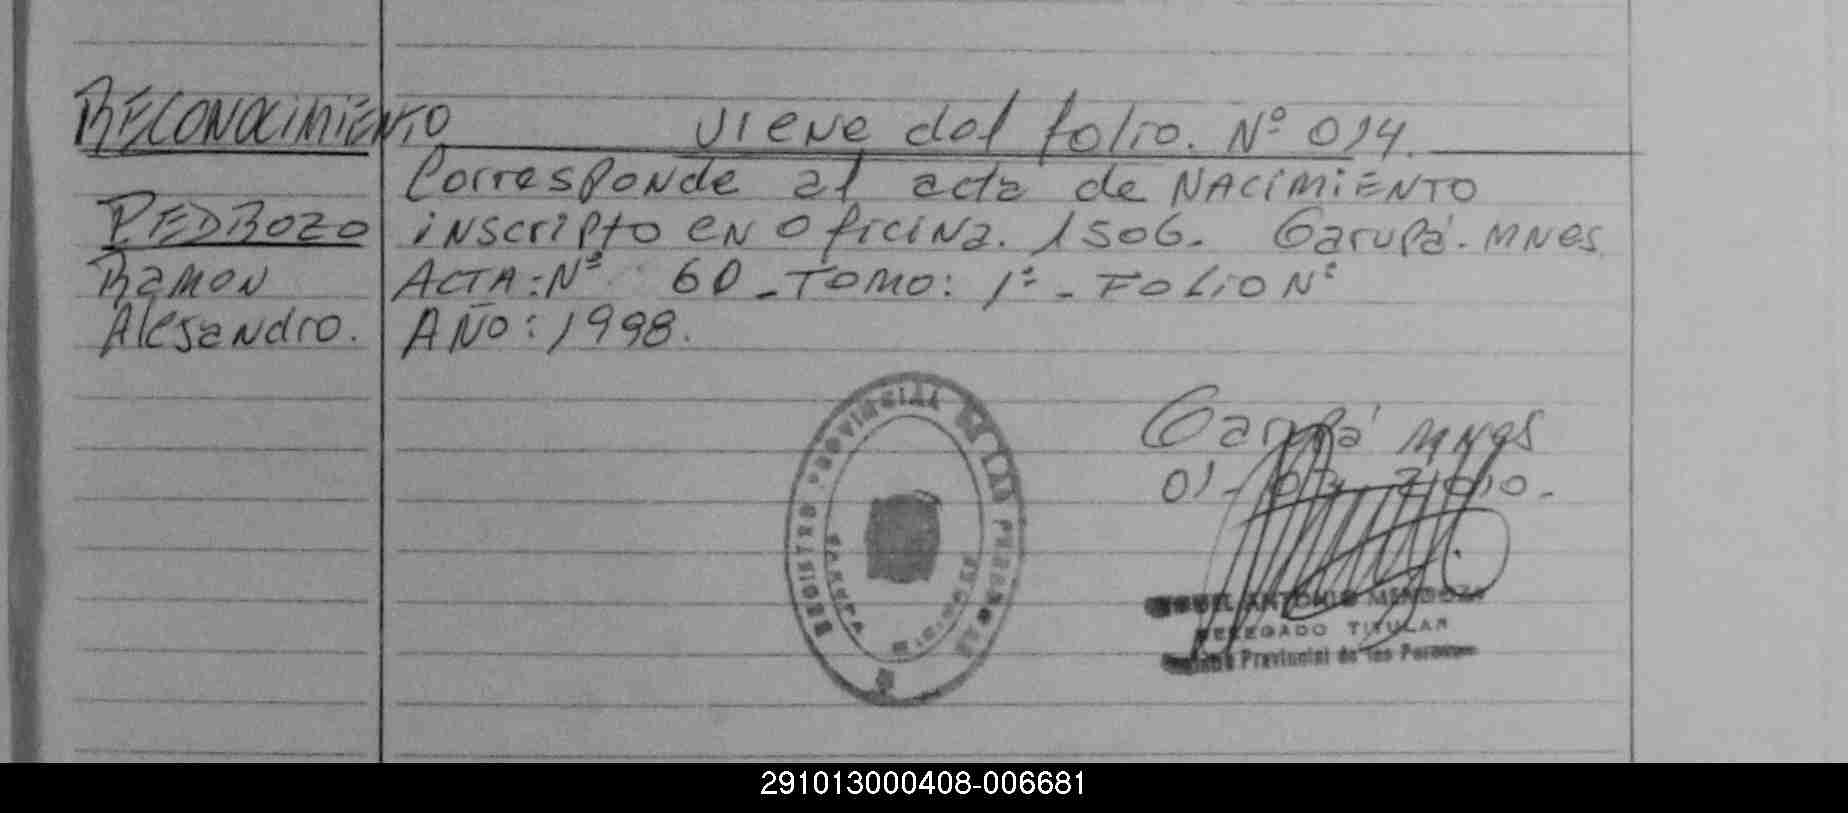 RECONOCIMIENTO
viene del folio. Nº 014.
PEDROZO
Ramon
Alejandro.
Corresponde al acta de NACIMIENTO
inscripto en Oficina. 1506. Garupá. MNES
ACTA: Nº 60 - TOMO: 1º - FOLIO Nº
AÑO: 1998.
REGISTRO PROVINCIAL DE LAS PERSONAS
Garupá MNES
ANTONIO MENDOZA
DELEGADO TITULAR
Provincial de las Personas
291013000408-006681